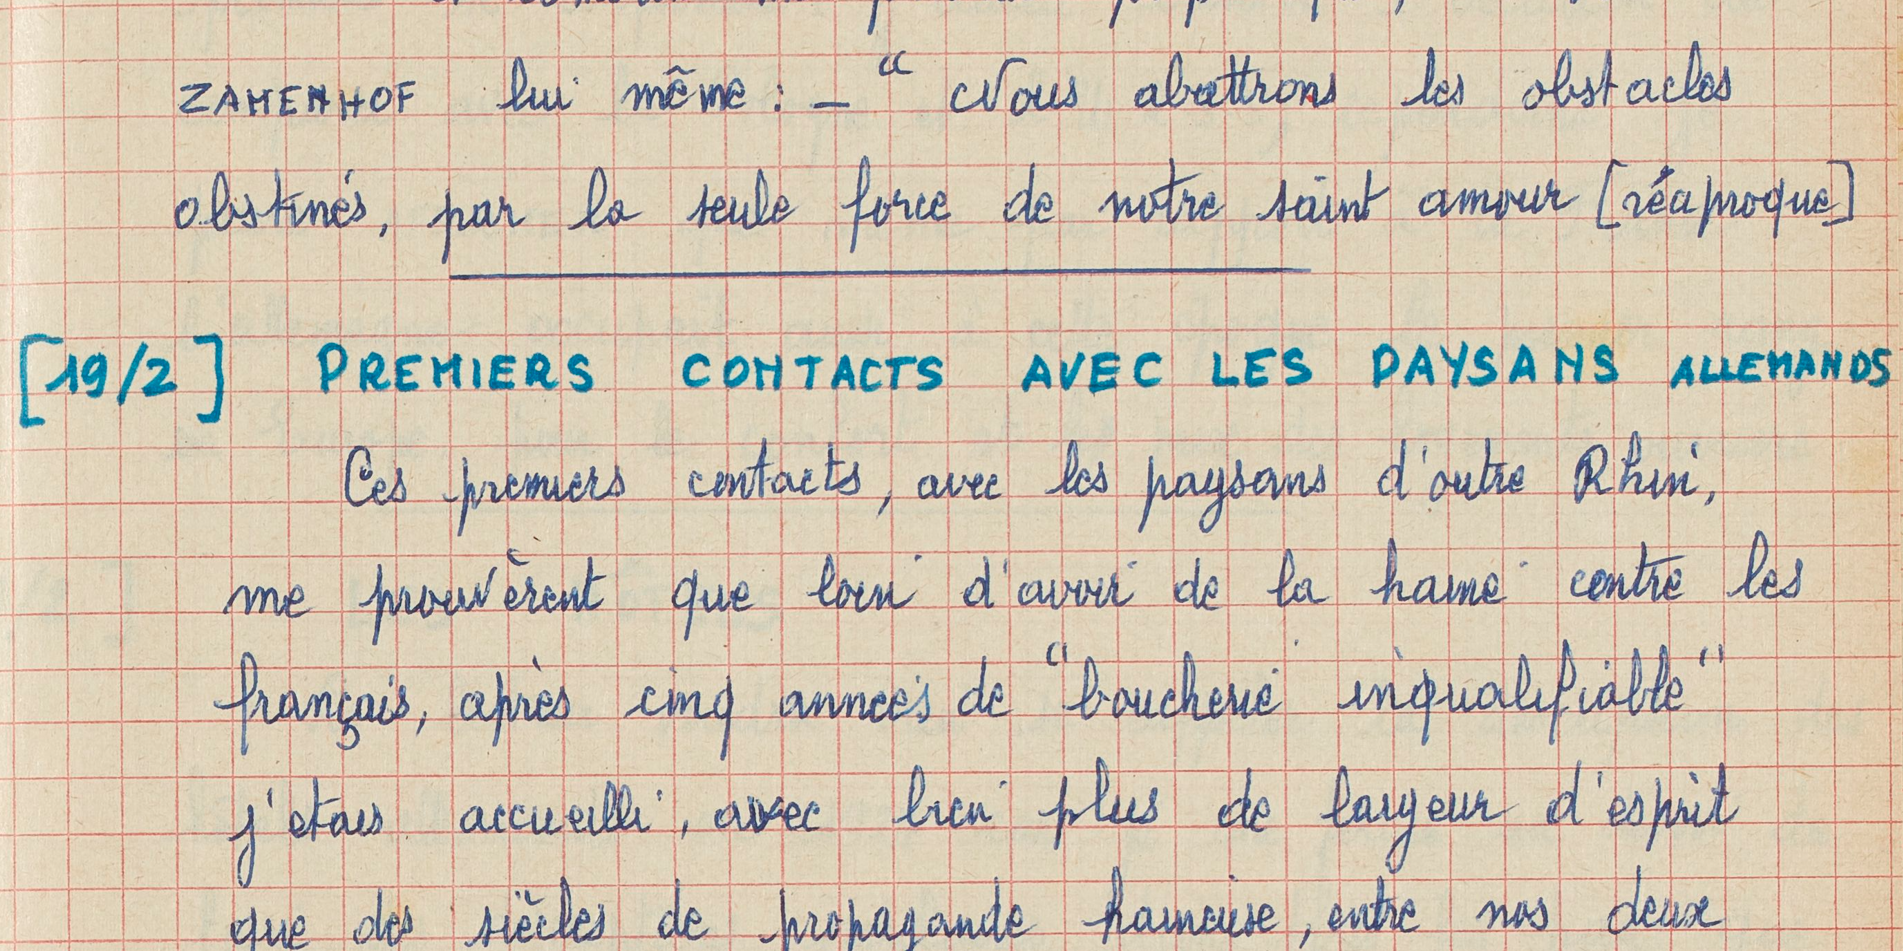 ZAMENHOF lui même : – “ Nous abattrons les obstacles
obstinés, par la seule force de notre saint amour [réciproque]
[19/2] PREMIERS CONTACTS AVEC LES PAYSANS ALLEMANDS
Ces premiers contacts, avec les paysans d'outre Rhin,
me prouvèrent que loin d'avoir de la haine contre les
français, après cinq années de “boucherie inqualifiable”
j'etais accueilli, avec bien plus de largeur d'esprit
que des siècles de propagande haineuse, entre nos deux